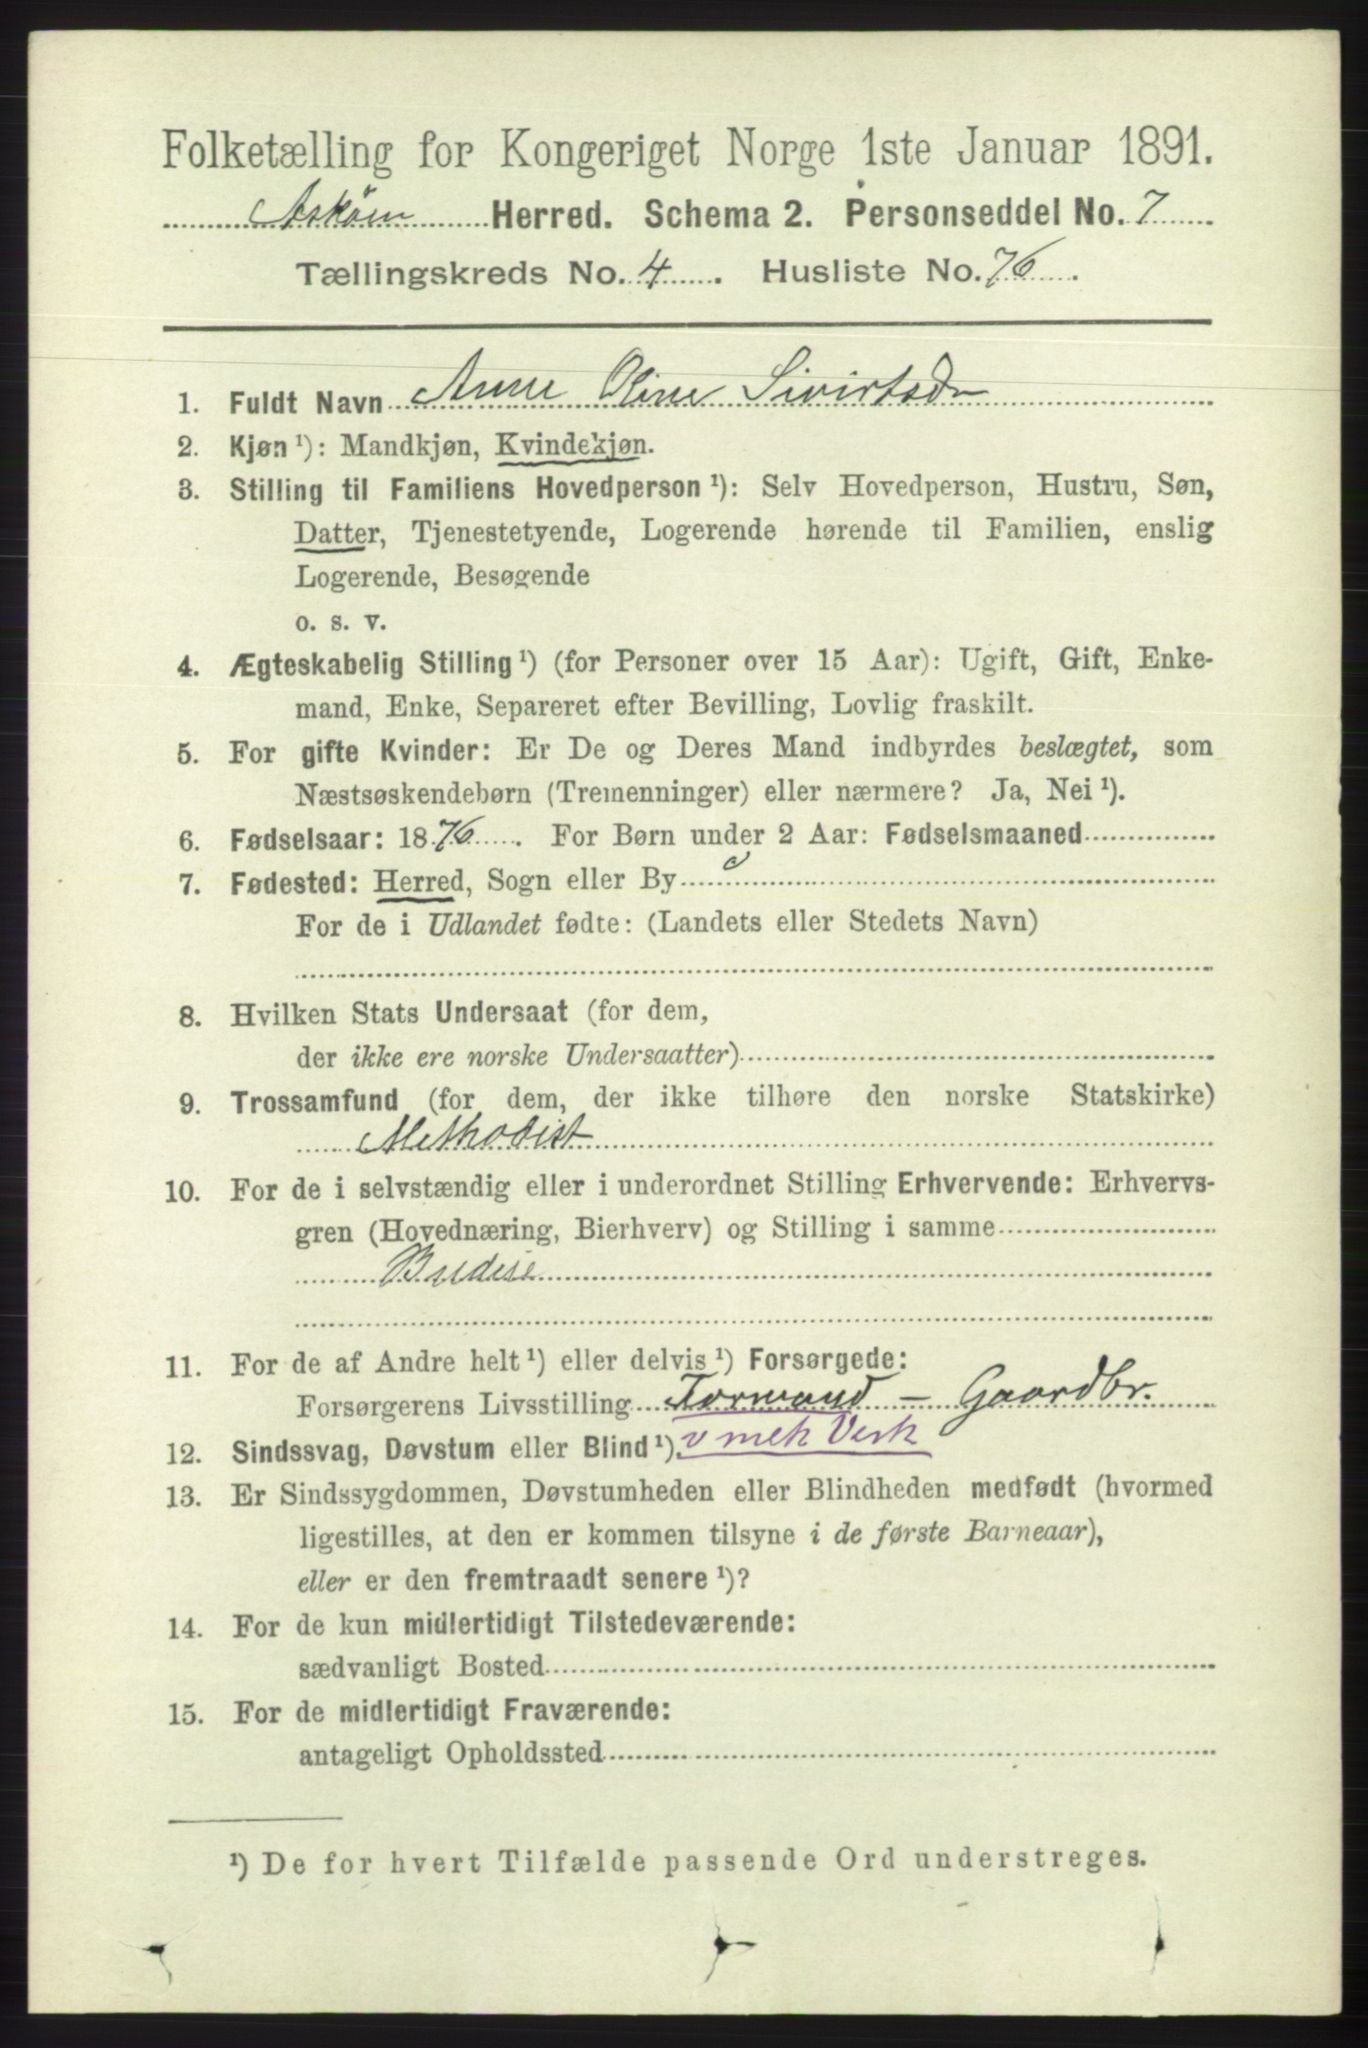 Folketælling for Kongeriget Norge 1ste Januar 1891.
Askøen Herred. Schema 2. Personseddel No. 7
Tællingskreds No. 4. Husliste No. 76.
1. Fuldt Navn Anne Oline Sivirtsdr
2. Kjøn ¹): Mandkjøn, Kvindekjøn.
3. Stilling til Familiens Hovedperson ¹): Selv Hovedperson, Hustru, Søn,
Datter, Tjenestetyende, Logerende hørende til Familien, enslig
Logerende, Besøgende
o. s. v.
4. Ægteskabelig Stilling ¹) (for Personer over 15 Aar): Ugift, Gift, Enke-
mand, Enke, Separeret efter Bevilling, Lovlig fraskilt.
5. For gifte Kvinder: Er De og Deres Mand indbyrdes beslægtet, som
Næstsøskendebørn (Tremenninger) eller nærmere? Ja, Nei ¹).
6. Fødselsaar: 1876. For Børn under 2 Aar: Fødselsmaaned
7. Fødested: Herred, Sogn eller By
For de i Udlandet fødte: (Landets eller Stedets Navn)
8. Hvilken Stats Undersaat (for dem,
der ikke ere norske Undersaatter)
9. Trossamfund (for dem, der ikke tilhøre den norske Statskirke)
Methodist
10. For de i selvstændig eller i underordnet Stilling Erhvervende: Erhvervs-
gren (Hovednæring, Bierhverv) og Stilling i samme
Budeie
11. For de af Andre helt ¹) eller delvis ¹) Forsørgede:
Forsørgerens Livsstilling Formand – Gaardbr.
12. Sindssvag, Døvstum eller Blind ¹). v mek Verk
13. Er Sindssygdommen, Døvstumheden eller Blindheden medfødt (hvormed
ligestilles, at den er kommen tilsyne i de første Barneaar),
eller er den fremtraadt senere ¹)?
14. For de kun midlertidigt Tilstedeværende:
sædvanligt Bosted
15. For de midlertidigt Fraværende:
antageligt Opholdssted
¹) De for hvert Tilfælde passende Ord understreges.